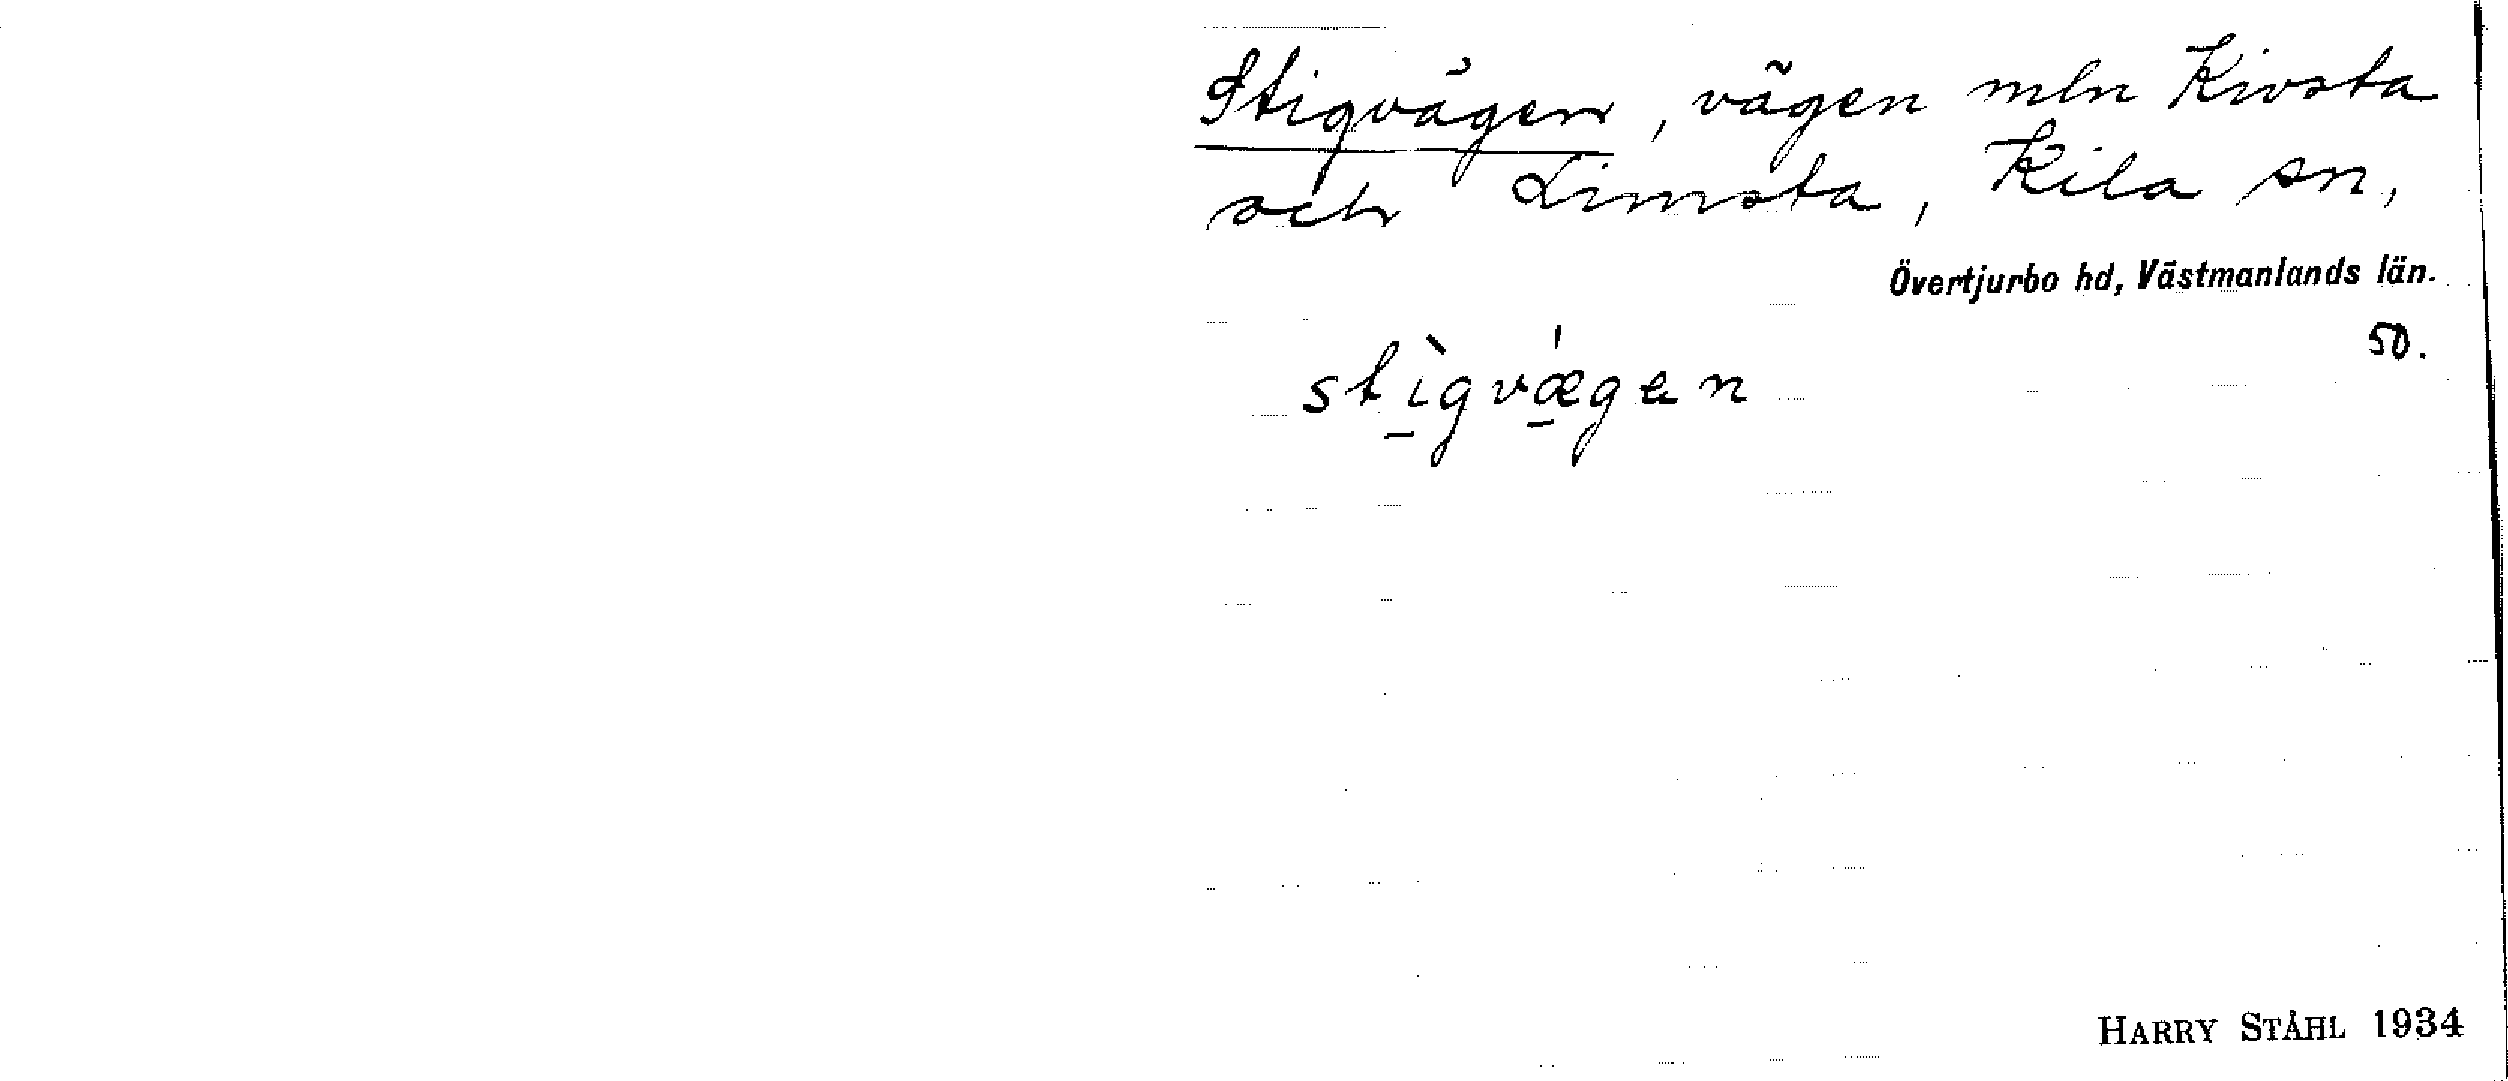 Stigvägen, vägen mln Kivsta
och Limsta, Kila sn,
Övertjurbo hd, Västmanlands län.
50.
stì̱gvǽ̱gen
HARRY STÅHL 1934